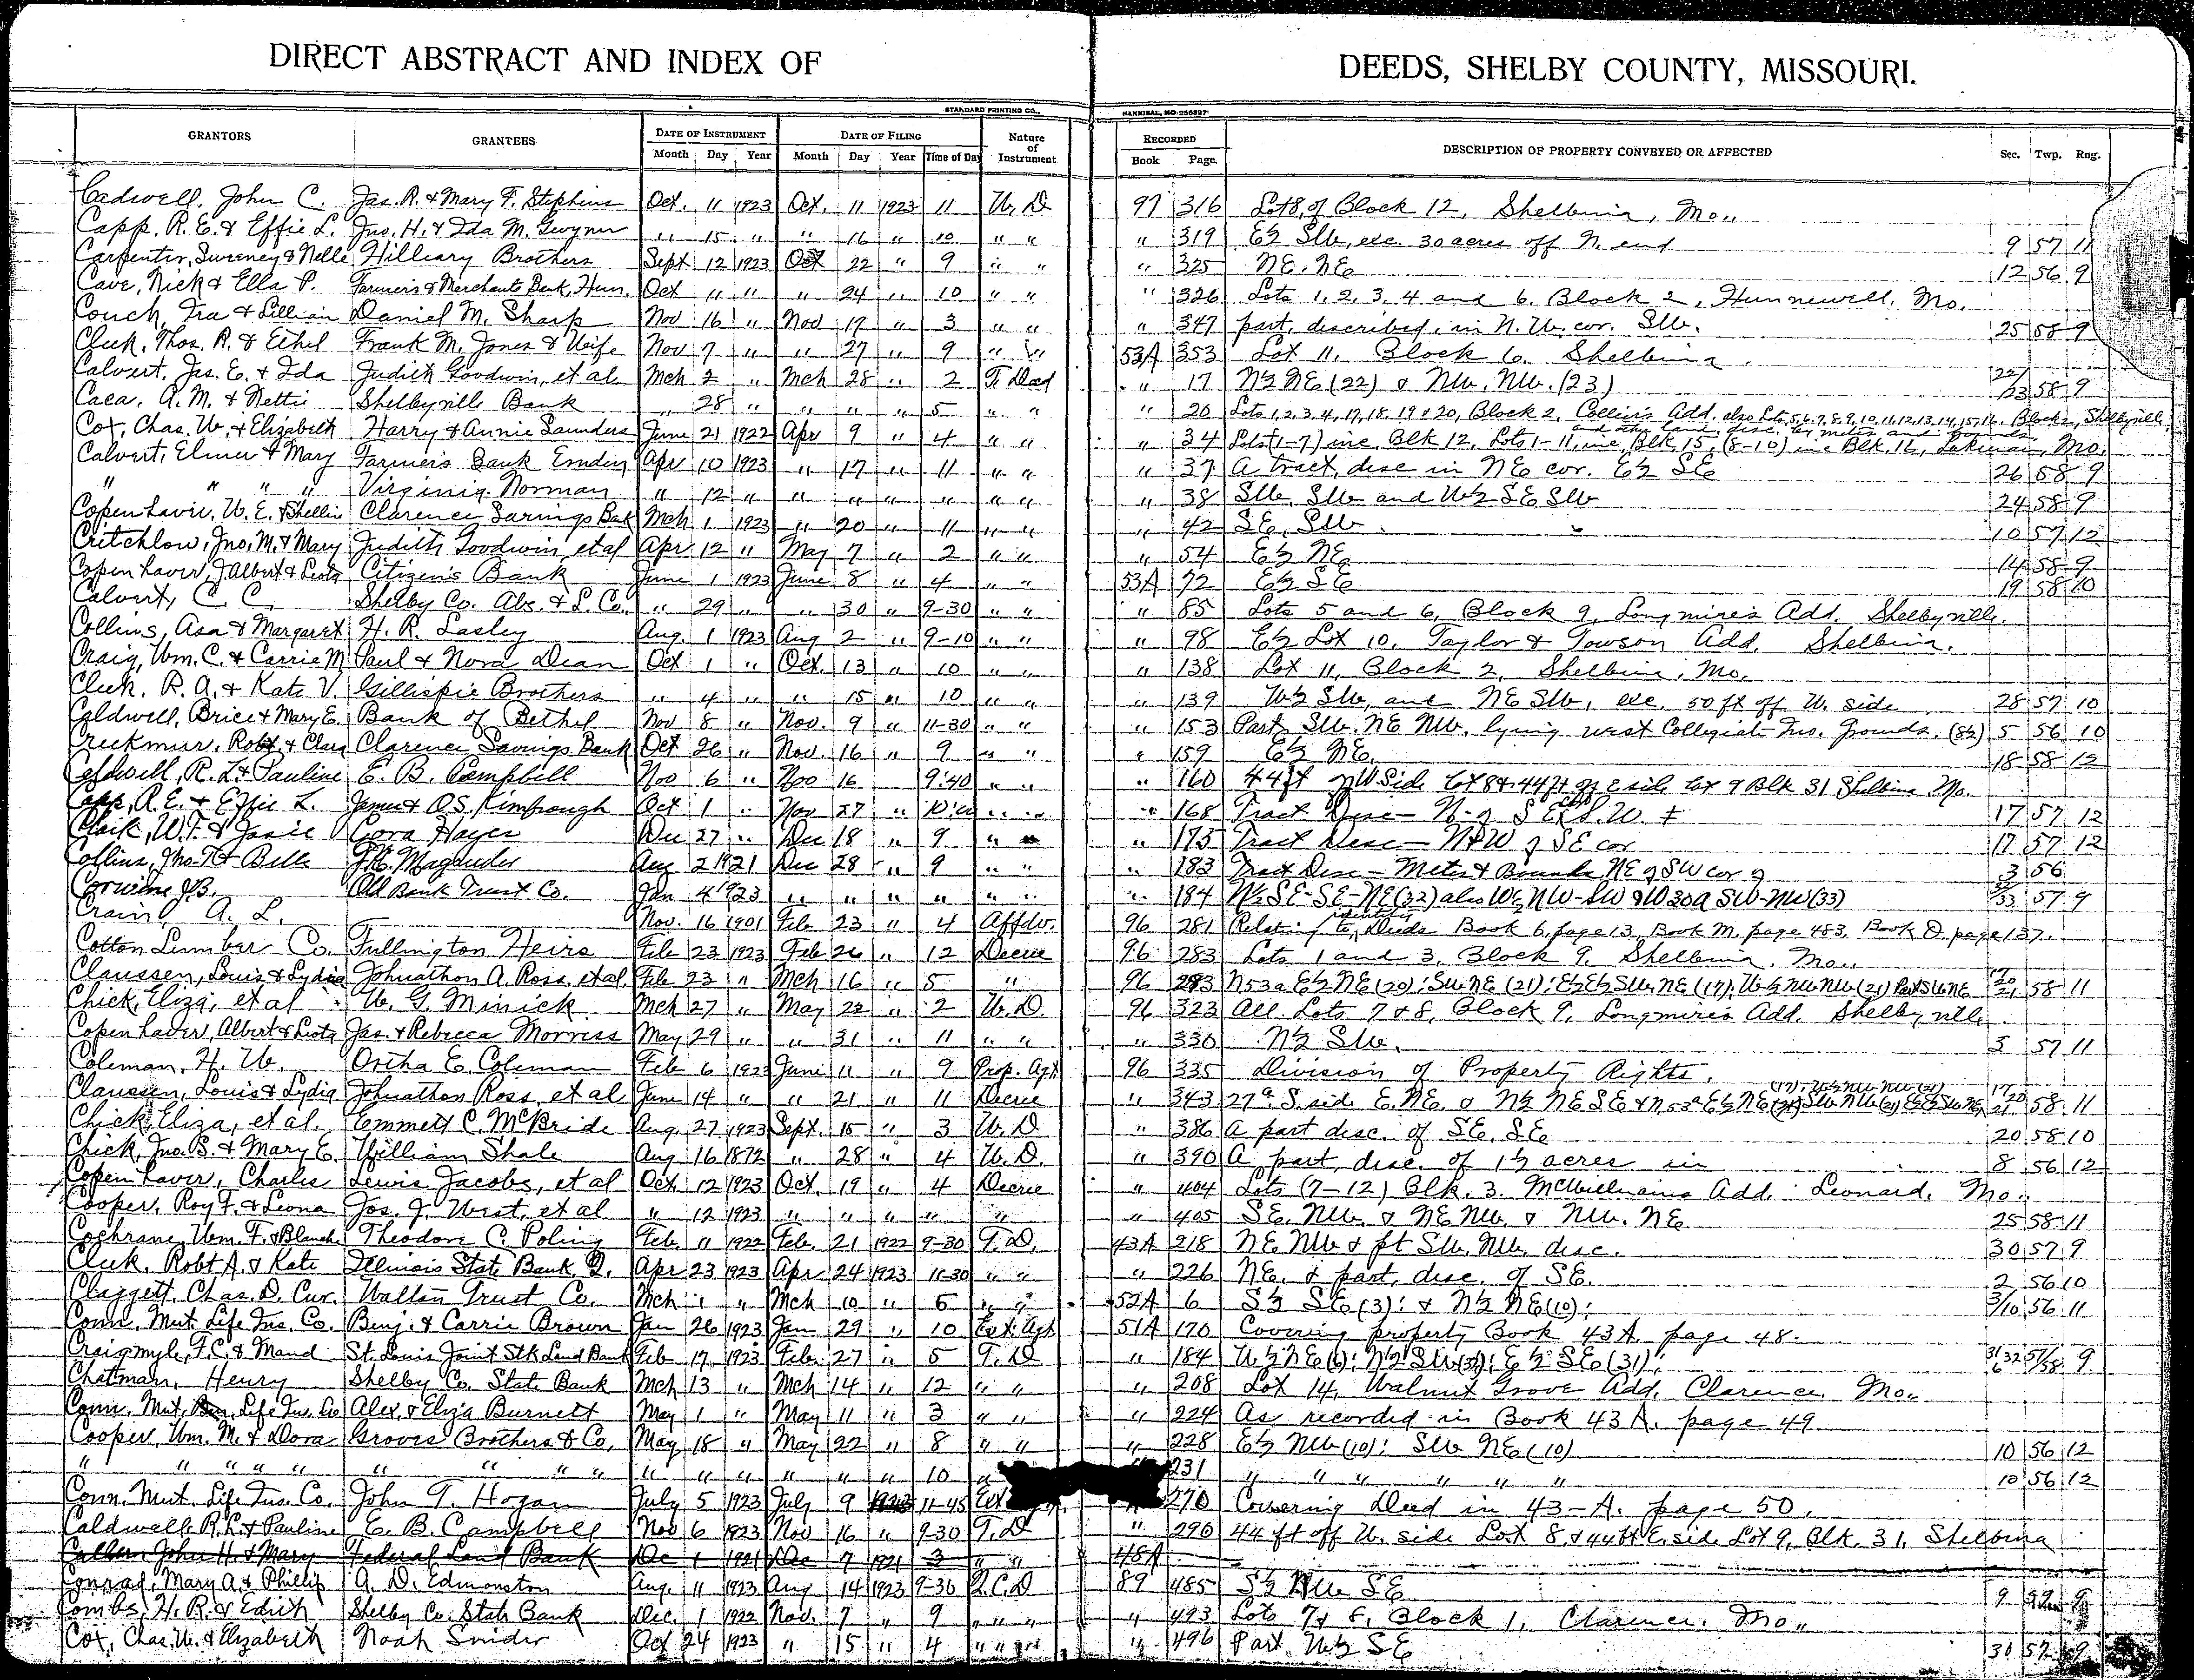 DIRECT ABSTRACT AND INDEX OF DEEDS, SHELBY COUNTY, MISSOURI.
STANDARD PRINTING CO., HANNIBAL, MO.
GRANTORS GRANTEES DATE OF INSTRUMENT DATE OF FILING Nature of Instrument RECORDED DESCRIPTION OF PROPERTY CONVEYED OR AFFECTED Sec. Twp. Rng.
Month Day Year Month Day Year Time of Day Book Page.
Cadwell, John C. Jas. R. & Mary F. Stephens Oct. 11 1923 Oct. 11 1923 11 W. D 97 316 Lot 8, of Block 12, Shelbina, Mo.,
Capp, R. E. & Effie L. Jno. H. & Ida M. Gwynn " 15 " " 16 " 10 " " " 319 E½ SW, exc. 30 acres off N. end 9 57 11
Carpenter, Sweeney & Nelle Hilleary Brothers Sept 12 1923 Oct 22 " 9 " " " 325 NE. NE 12 56 9
Cave, Nick & Ella P. Farmers & Merchants Bank, Hun. Oct 11 " " 24 " 10 " " " 326 Lots 1, 2, 3, 4 and 6, Block 2, Hunnewell, Mo.
Couch, Ira & Lillian Daniel M. Sharp Nov 16 " Nov 19 " 3 " " " 347 part, described, in N. W. cor. SW. 25 58 9
Cleek, Thos. R. & Ethel Frank M. Jones & Wife Nov 7 " " 27 " 9 " " 53A 353 Lot 11, Block 6, Shelbina.
Calvert, Jas. E. & Ida Judith Goodwin, et al Mch 2 " Mch 28 " 2 T. Deed " 17 N½ NE (22) & NW. NW. (23) 22/23 58 9
Caca, A. M. & Nettie Shelbyville Bank " 28 " " " " 5 " " " 20 Lots 1, 2, 3, 4, 17, 18, 19 & 20, Block 2, Collier's Add. also Lots 5, 6, 7, 8, 9, 10, 11, 12, 13, 14, 15, 16, Block 2, Shelbyville,
and other land, desc. by metes and bounds
Cox, Chas. W. & Elizabeth Harry & Annie Saunders June 21 1922 Apr 9 " 4 " " " 34 Lots (1-7) inc, Blk 12, Lots 1-11, inc, Blk 15, (8-10) inc. Blk. 16, Lakenan, Mo.
Calvert, Elmer & Mary Farmers Bank Emden Apr 10 1923 " 17 " 11 " " " 37 A tract, desc in NE cor. E½ SE 26 58 9
" " " " Virginia Norman " 12 " " " " " " " " 38 SW. SW and W½ SE SW 24 58 9
Copenhaver, W. E. & Shellie Clarence Savings Bank Mch 1 1923 " 20 " 11 " " " 42 SE. SW 10 57 12
Critchlow, Jno. M. & Mary Judith Goodwin, et al Apr 12 " May 7 " 2 " " " 54 E½ NE 14 58 9
Copenhaver, J. Albert & Leota Citizens Bank June 1 1923 June 8 " 4 " " 53A 72 E½ SE 19 58 10
Calvert, C. C. Shelby Co. Abs. & L. Co., " 29 " " 30 " 9-30 " " " 85 Lots 5 and 6, Block 9, Longmire's Add. Shelbyville.
Collins, Asa & Margaret H. R. Lasley Aug. 1 1923 Aug 2 " 9-10 " " " 98 E½ Lot 10, Taylor & Towson Add. Shelbina.
Craig, Wm. C. & Carrie M Paul & Nora Dean Oct 1 " Oct. 13 " 10 " " " 138 Lot 11, Block 2, Shelbina, Mo.
Cleek, R. A. & Kate V. Gillispie Brothers " 4 " " 15 " 10 " " " 139 W½ SW, and NE SW, exc. 50 ft off W. side 28 57 10
Caldwell, Brice & Mary E. Bank of Bethel Nov 8 " Nov. 9 " 11-30 " " " 153 Part SW. NE NW. lying west Collegiate Ins. Grounds. (8½) 5 56 10
Creekmur, Robt. & Clara Clarence Savings Bank Oct 26 " Nov. 16 " 9 " " " 159 E½ NE. 18 58 12
Caldwell, R. L. & Pauline E. B. Campbell Nov 6 " Nov 16 9:40 " " " 160 44 ft W Side Lot 8 & 44 ft off E side Lot 9 Blk 31 Shelbina Mo.
Capp, R. E. & Effie L. James & O. S. Kimbrough Oct 1 " Nov 27 " " " " 168 Tract Desc- 17 57 12
Clark, W. T. & Josie Cora Hayes Dec 27 " Dec 18 " 9 " " " 175 Tract Desc- N & W of SE cor 17 57 12
Collins, Jno. & Belle Magruder Aug 2 1921 Dec 28 " 9 " " " 183 Tract Desc- Metes & Bounds NE of SW cor of 3 56
Corwine J. B. Old Bank Trust Co. Jan 4 1923 " " " " " " " 184 N½ SE-SE-NE (32) also W½ NW-SW & W 30a SW-NW (33) 32/33 57 9
Crain, A. L. Nov. 16 1901 Feb 23 " 4 Affdv. 96 281 Relating to identity Deeds Book 6, page 13, Book M, page 483, Book D page 137.
Cotton Lumber Co. Fullington Heirs Feb 23 1923 Feb 26 " 12 Decree 96 283 Lots 1 and 3, Block 9, Shelbina, Mo.,
Claussen, Louis & Lydia Johnathon A. Ross, et al. Feb 23 " Mch 16 " 5 " 96 293 N 53a E½ NE (20); SW NE (21); E½ E½ SW. NE (17); W½ NW NW (21) Part SW NE 17 20 21 58 11
Chick, Eliza, et al W. G. Minick Mch 27 " May 22 " 2 W. D. 96 323 All Lots 7 & 8, Block 9, Longmires Add. Shelbyville.
Copenhaver, Albert & Leota Jas. & Rebecca Morriss May 29 " " 31 " 11 " " " 330 N½ SW. 3 57 11
Coleman, H. W. Ortha E. Coleman Feb 6 1923 June 11 " 9 Prop. Agt 96 335 Division of Property Rights.
Claussen, Louis & Lydia Johnathon Ross, et al June 14 " " 21 " 11 Decree " 343 27a. S. side E. NE. & N½ NE SE & N 53a E½ NE SW NW (21) E½ E½ SW NE (17); W½ NW NW (21) 17 20 21 58 11
Chick, Eliza, et al. Emmett C. McBride Aug. 27 1923 Sept. 15 " 3 W. D " 386 A part desc. of SE. SE 20 58 10
Chick, Jno. S. & Mary E. William Shale Aug 16 1872 " 28 " 4 W. D. " 390 A part, desc. of 1½ acres in 8 56 12
Copenhaver, Charles Lewis Jacobs, et al Oct. 12 1923 Oct. 19 " 4 Decree " 404 Lots (7-12) Blk. 3. McWilliams Add. Leonard, Mo.,
Cooper, Roy F. & Leona Jos. J. West, et al " 12 1923 " " " " " " 405 SE. NW. & NE NW & NW. NE 25 58 11
Cochrane, Wm. F. & Blanche Theodore C. Poling Feb. 11 1922 Feb. 21 1922 9-30 T. D. 43A 218 NE NW & pt SW. NW. desc. 30 57 9
Cleek, Robt A. & Kate Illinois State Bank, Q. Apr 23 1923 Apr 24 1923 11-30 " " " 226 NE. & part, desc. of SE. 2 56 10
Claggett, Chas. D. Cur. Walton Trust Co. Mch 1 " Mch 10 " 5 " " 52A 6 S½ SE (3); & N½ NE (10); 3/10 56 11
Conn. Mut. Life Ins. Co. Benj. & Carrie Brown Jan 26 1923 Jan 29 " 10 Ext. Agt 51A 170 Covering property Book 43A. page 48.
Craigmyle, F. C. & Maud St. Louis Joint Stk Land Bank Feb 17 1923 Feb. 27 " 5 T. D " 184 W½ NE (6); N½ SW (31); E½ SE (31); 31 32 6 57/58 9
Chatman, Henry Shelby Co. State Bank Mch 13 " Mch 14 " 12 " " " 208 Lot 14, Walnut Grove Add, Clarence, Mo.,
Conn. Mut. Life Ins. Co Alex. & Eliza Burnett May 1 " May 11 " 3 " " " 224 As recorded in Book 43 A. page 49
Cooper, Wm. M. & Dora Groves Brothers & Co. May 18 " May 22 " 8 " " " 228 E½ NW (10); SW NE (10) 10 56 12
" " " " " " " " " " " " " " " 10 " 231 " " " " " " 10 56 12
Conn. Mut. Life Ins. Co. John T. Hogan July 5 1923 July 9 1923 11-45 Ext 270 Covering Deed in 43-A. page 50.
Caldwell R. L. & Pauline E. B. Campbell Nov 6 1923 Nov 16 " 9-30 T. D " 296 44 ft off W. side Lot 8, & 44 ft E. side Lot 9, Blk. 31, Shelbina
John H. & Mary Federal Land Bank Dec 1 1921 Dec 7 1921 3 " " 48A
Conrad, Mary A. & Phillip A. D. Edmonston Aug. 11 1923 Aug 14 1923 9-30 Q. C. D 89 485 S½ NW SE 9
Combs, H. R. & Edith Shelby Co. State Bank Dec. 1 1922 Nov. 7 " 9 " " " " 493 Lots 7 & 8, Block 1, Clarence, Mo.,
Cox, Chas. W. & Elizabeth Noah Snider Oct 24 1923 " 15 " 4 " " " " 496 Part W½ SE 30 57 9